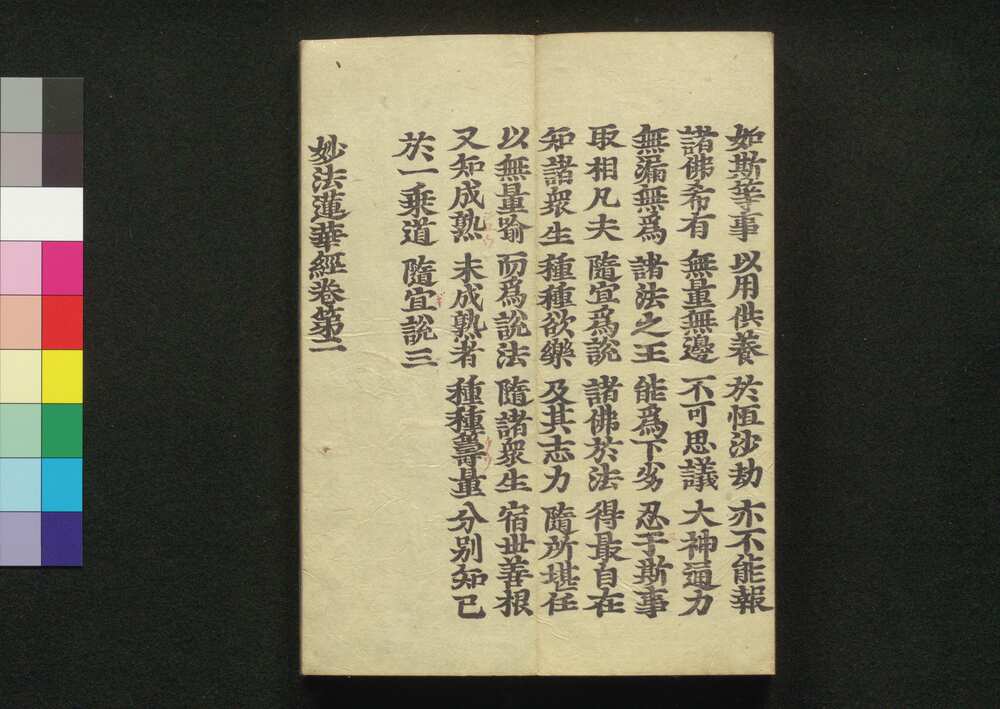 如斯等事 以用供養 於恒沙劫 亦不能報
諸佛希有 無量無邊 不可思議 大神通力
無漏無爲 諸法之王 能爲下劣 忍于斯事
取相凡夫 隨宜爲說 諸佛於法 得最自在
知諸衆生 種種欲樂 及其志力 隨所堪任
以無量喻 而爲說法 隨諸衆生 宿世善根
又知成熟 未成熟者 種種籌量 分別知已
於一乗道 隨宜說三
妙法蓮華經卷第二